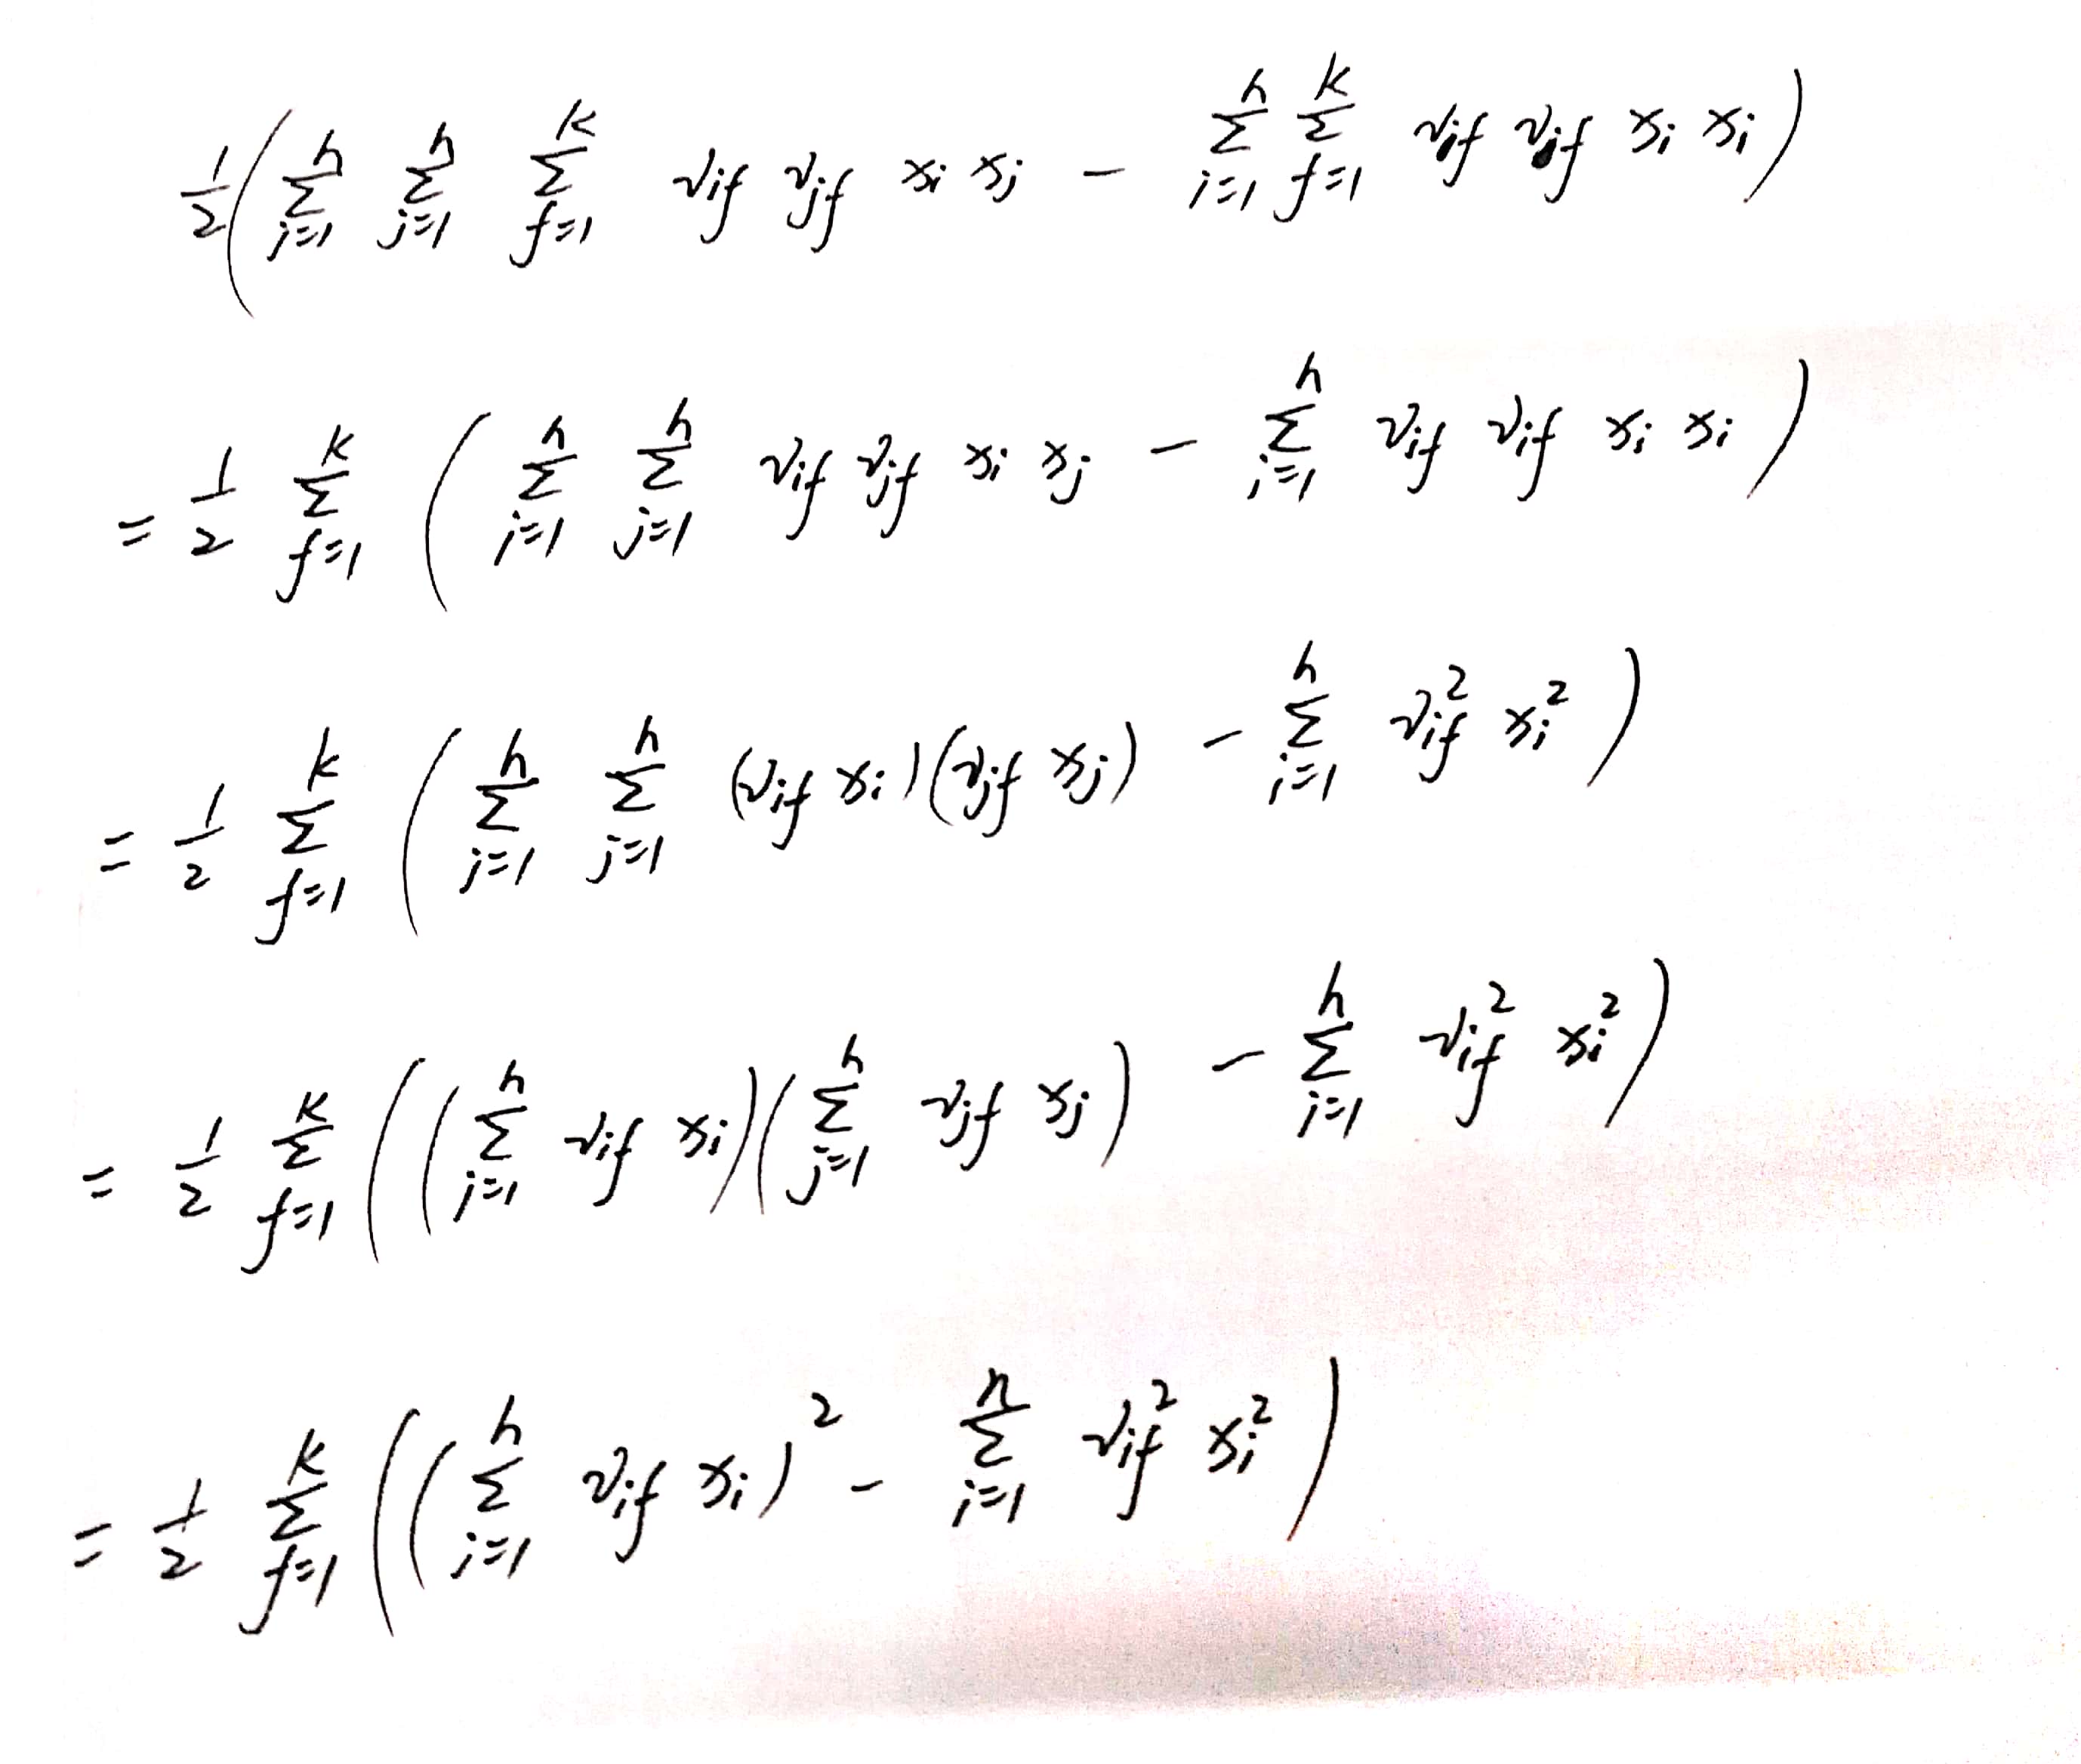 \frac{1}{2}\left(\sum_{i=1}^{n} \sum_{j=1}^{n} \sum_{f=1}^{k} v_{if} v_{jf} x_i x_j - \sum_{i=1}^{n} \sum_{f=1}^{k} v_{if} v_{if} x_i x_i\right)
= \frac{1}{2} \sum_{f=1}^{k} \left(\sum_{i=1}^{n} \sum_{j=1}^{n} v_{if} v_{jf} x_i x_j - \sum_{i=1}^{n} v_{if} v_{if} x_i x_i\right)
= \frac{1}{2} \sum_{f=1}^{k} \left(\sum_{i=1}^{n} \sum_{j=1}^{n} (v_{if} x_i)(v_{jf} x_j) - \sum_{i=1}^{n} v_{if}^2 x_i^2\right)
= \frac{1}{2} \sum_{f=1}^{k} \left(\left(\sum_{i=1}^{n} v_{if} x_i\right)\left(\sum_{j=1}^{n} v_{jf} x_j\right) - \sum_{i=1}^{n} v_{if}^2 x_i^2\right)
= \frac{1}{2} \sum_{f=1}^{k} \left(\left(\sum_{i=1}^{n} v_{if} x_i\right)^2 - \sum_{i=1}^{n} v_{if}^2 x_i^2\right)